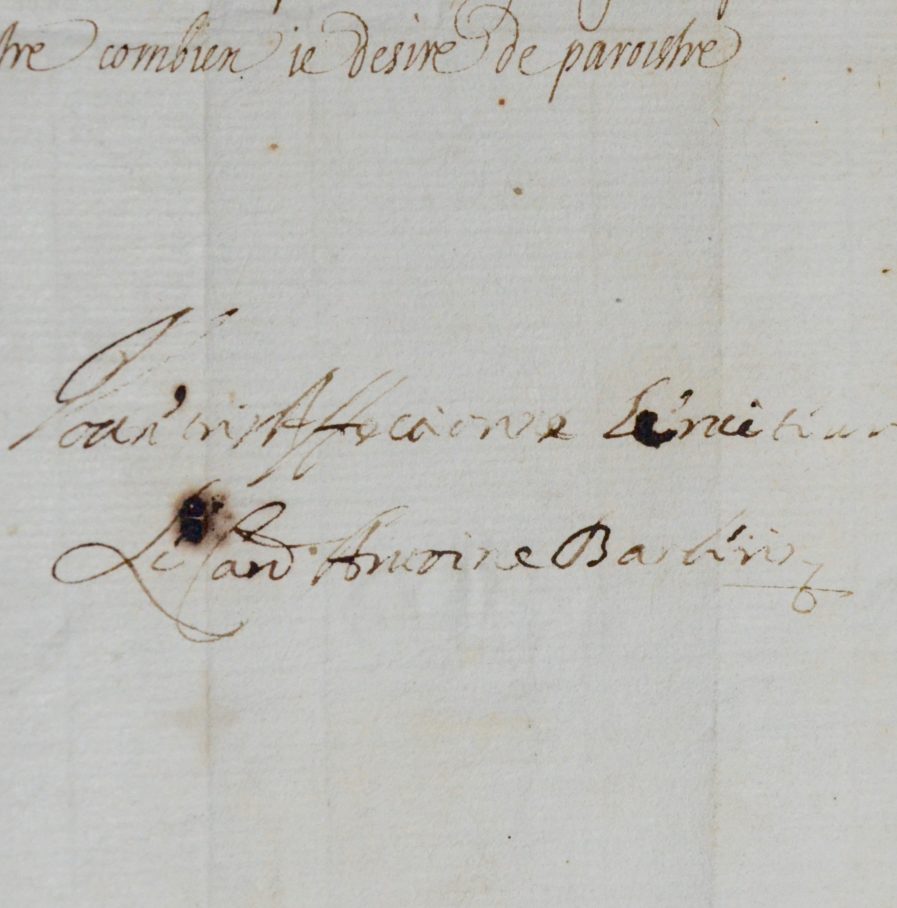 tre combien ie desire de paroistre
tres Affectionne Serviteur
Le Card Antoine Barberin